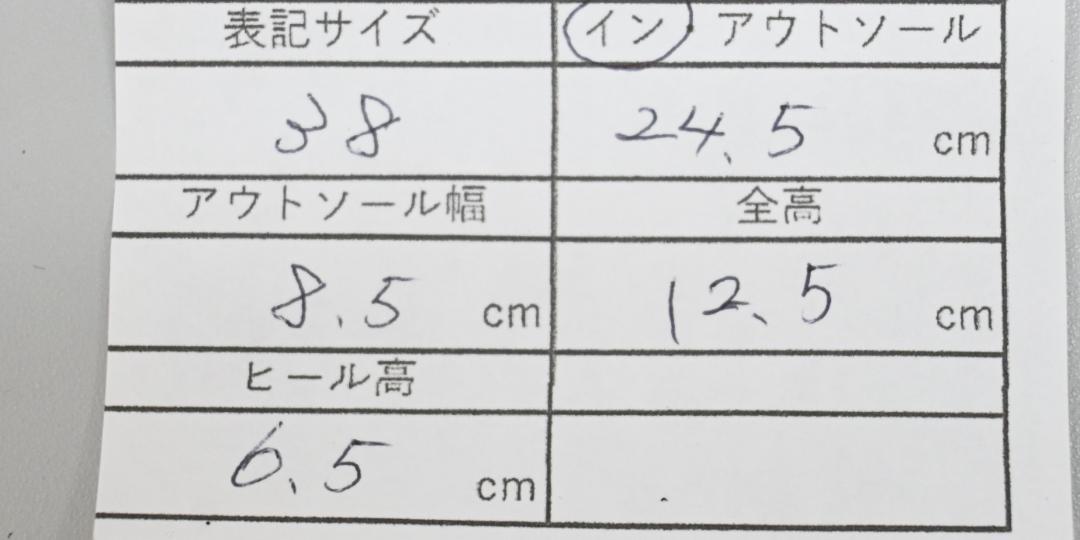 表記サイズ イン アウトソール
38 24.5 cm
アウトソール幅 全高
8.5 cm 12.5 cm
ヒール高
6.5 cm